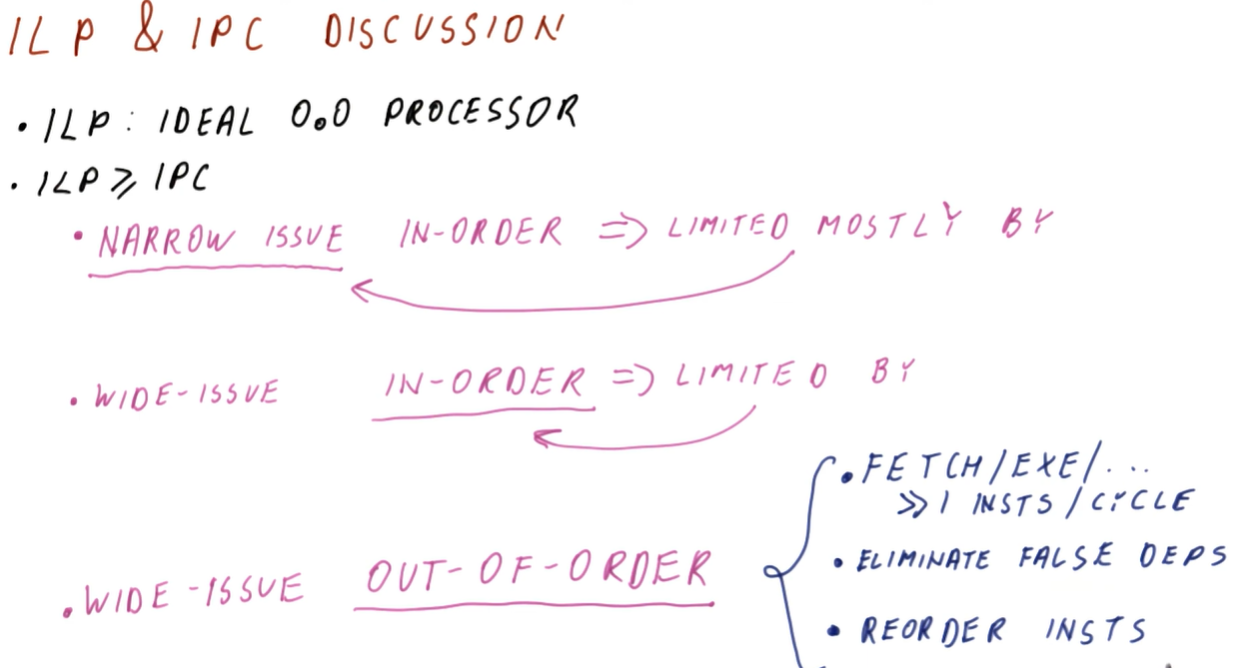 ILP & IPC DISCUSSION
• ILP: IDEAL O.O PROCESSOR
• ILP ⩾ IPC
• NARROW ISSUE IN-ORDER => LIMITED MOSTLY BY
• WIDE-ISSUE IN-ORDER => LIMITED BY
• WIDE-ISSUE OUT-OF-ORDER
• FETCH/EXE/...
>> 1 INSTS/CYCLE
• ELIMINATE FALSE DEPS
• REORDER INSTS